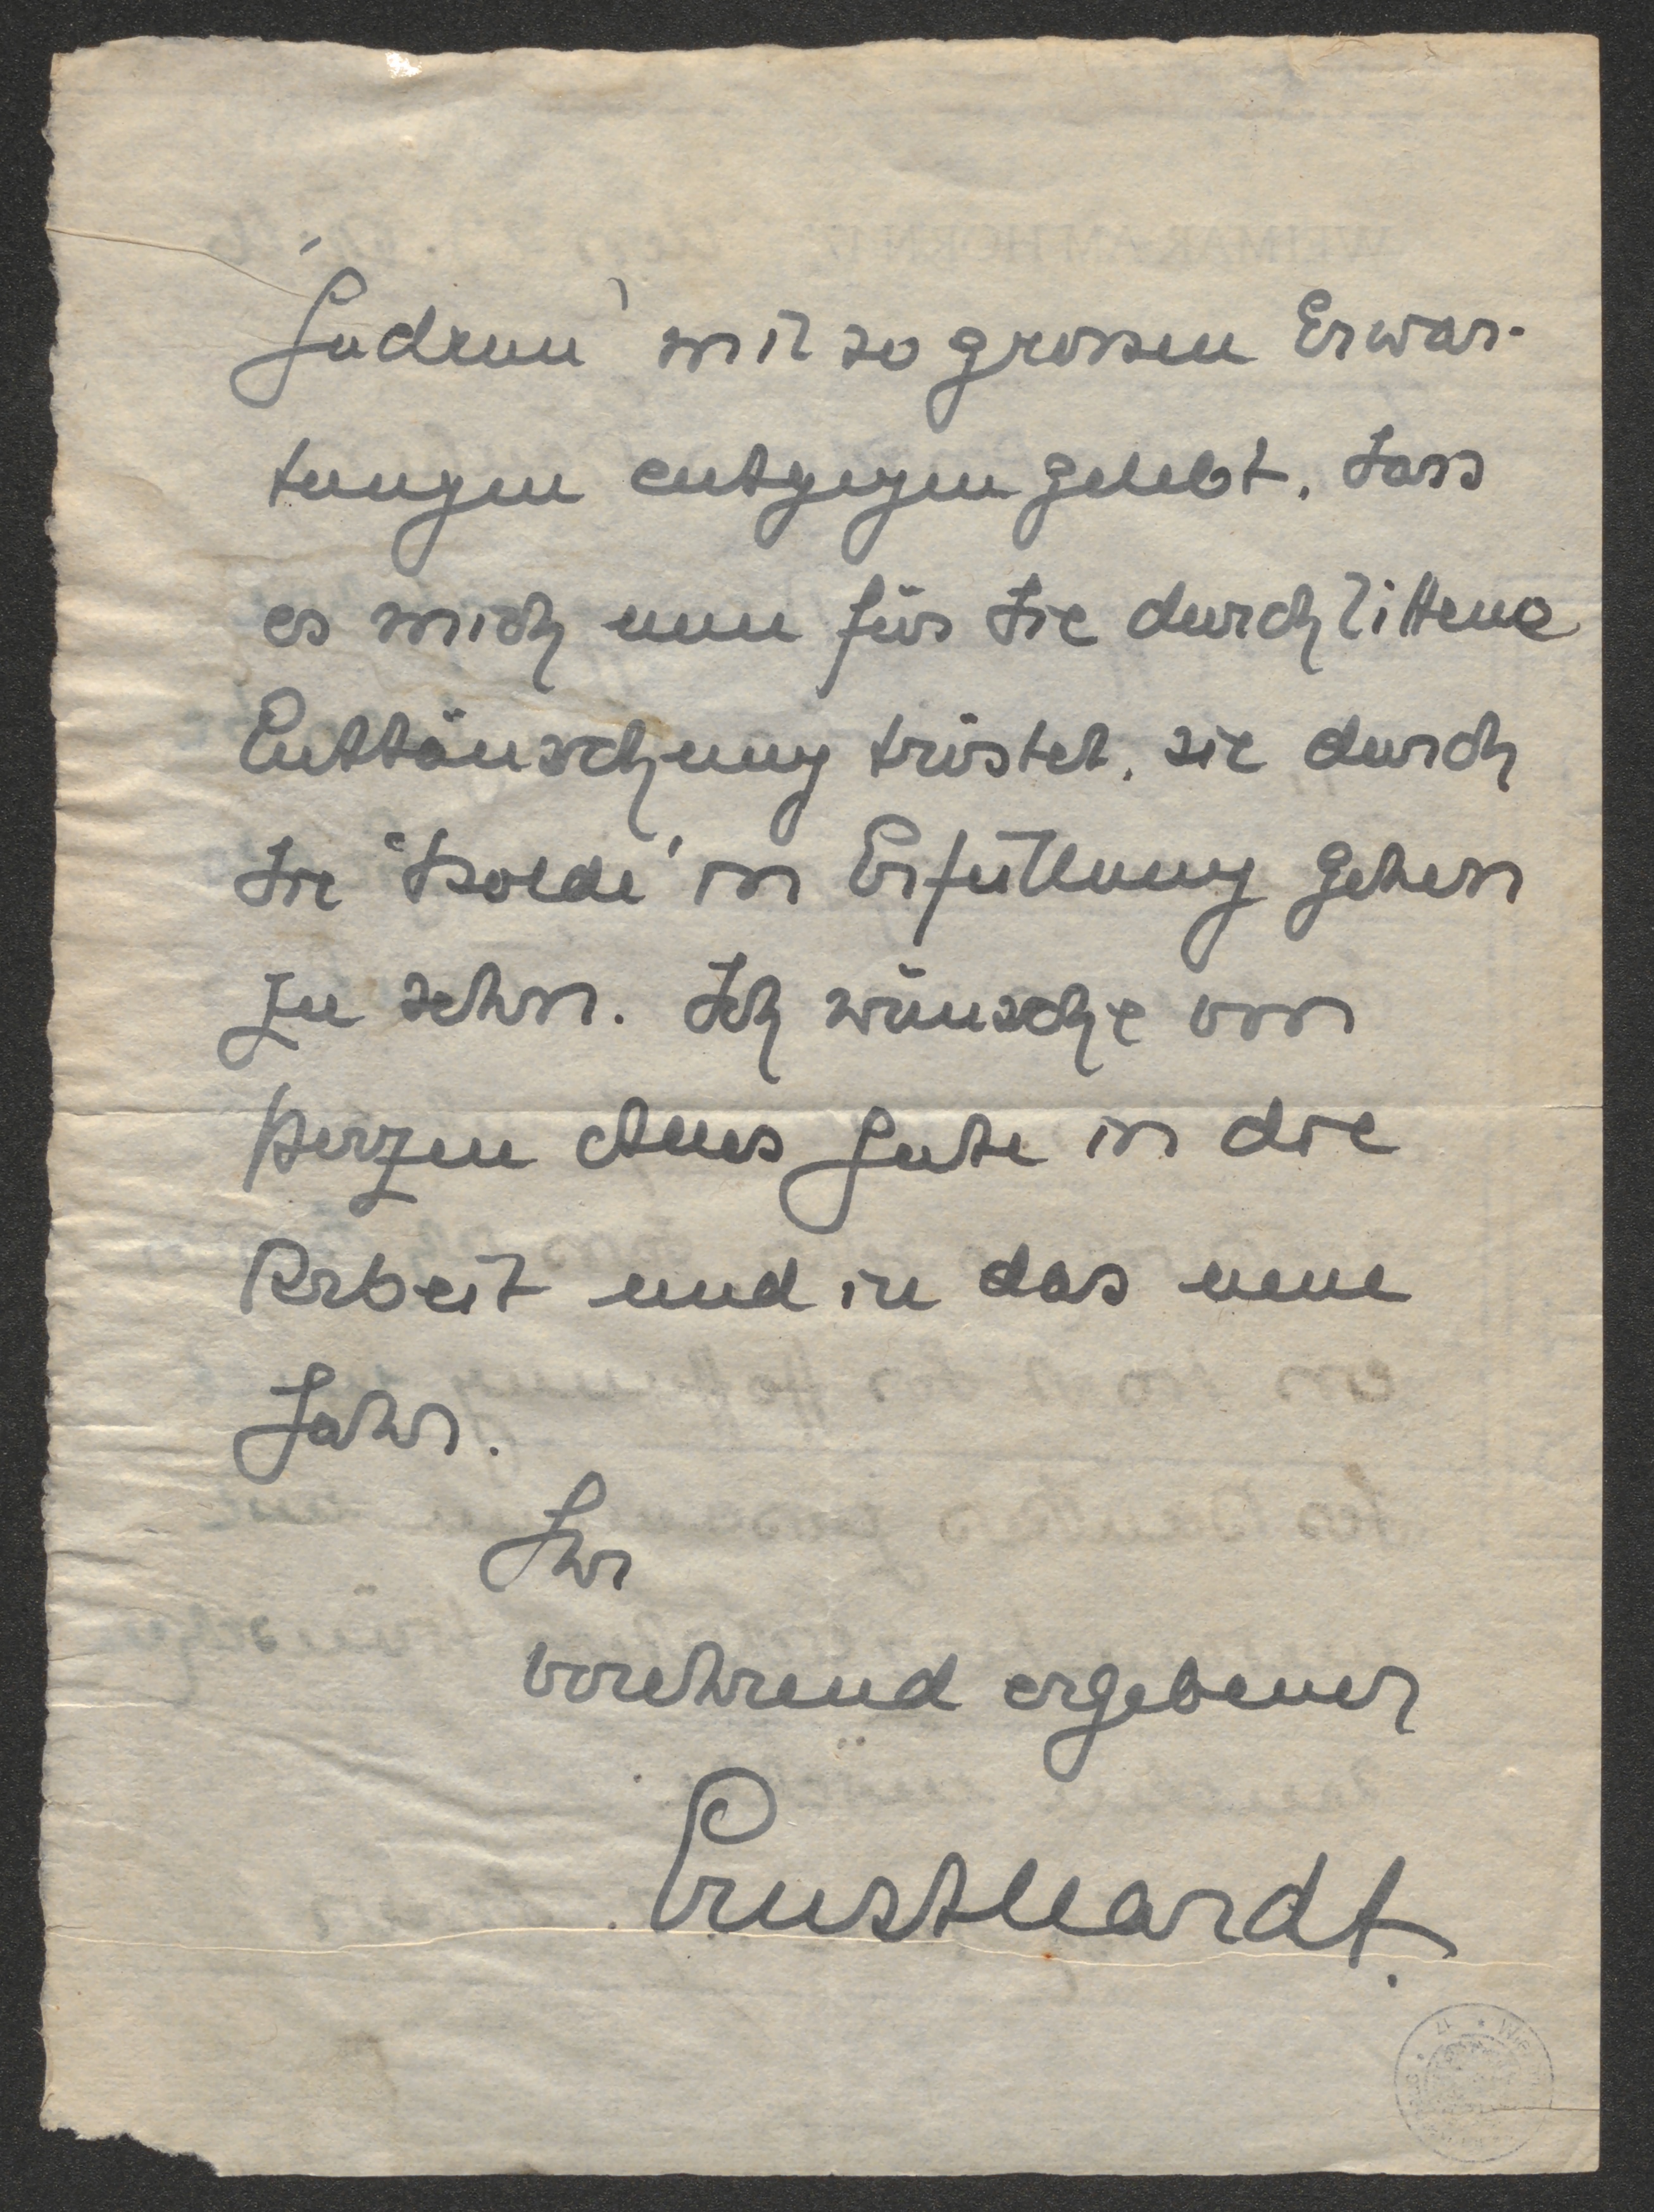 'Gudrun' mit so grossen Erwar-
tungen entgegen gelebt, dass
es mich nun für die durchlittene
Enttäuschung tröstet, sie durch
die 'Isolde' in Erfüllung gehen
zu sehen. Ich wünsche von
Herzen Alles Gute in die
Arbeit und in das neue
Jahr.
Ihr
verehrend ergebener
Ernst Hardt.